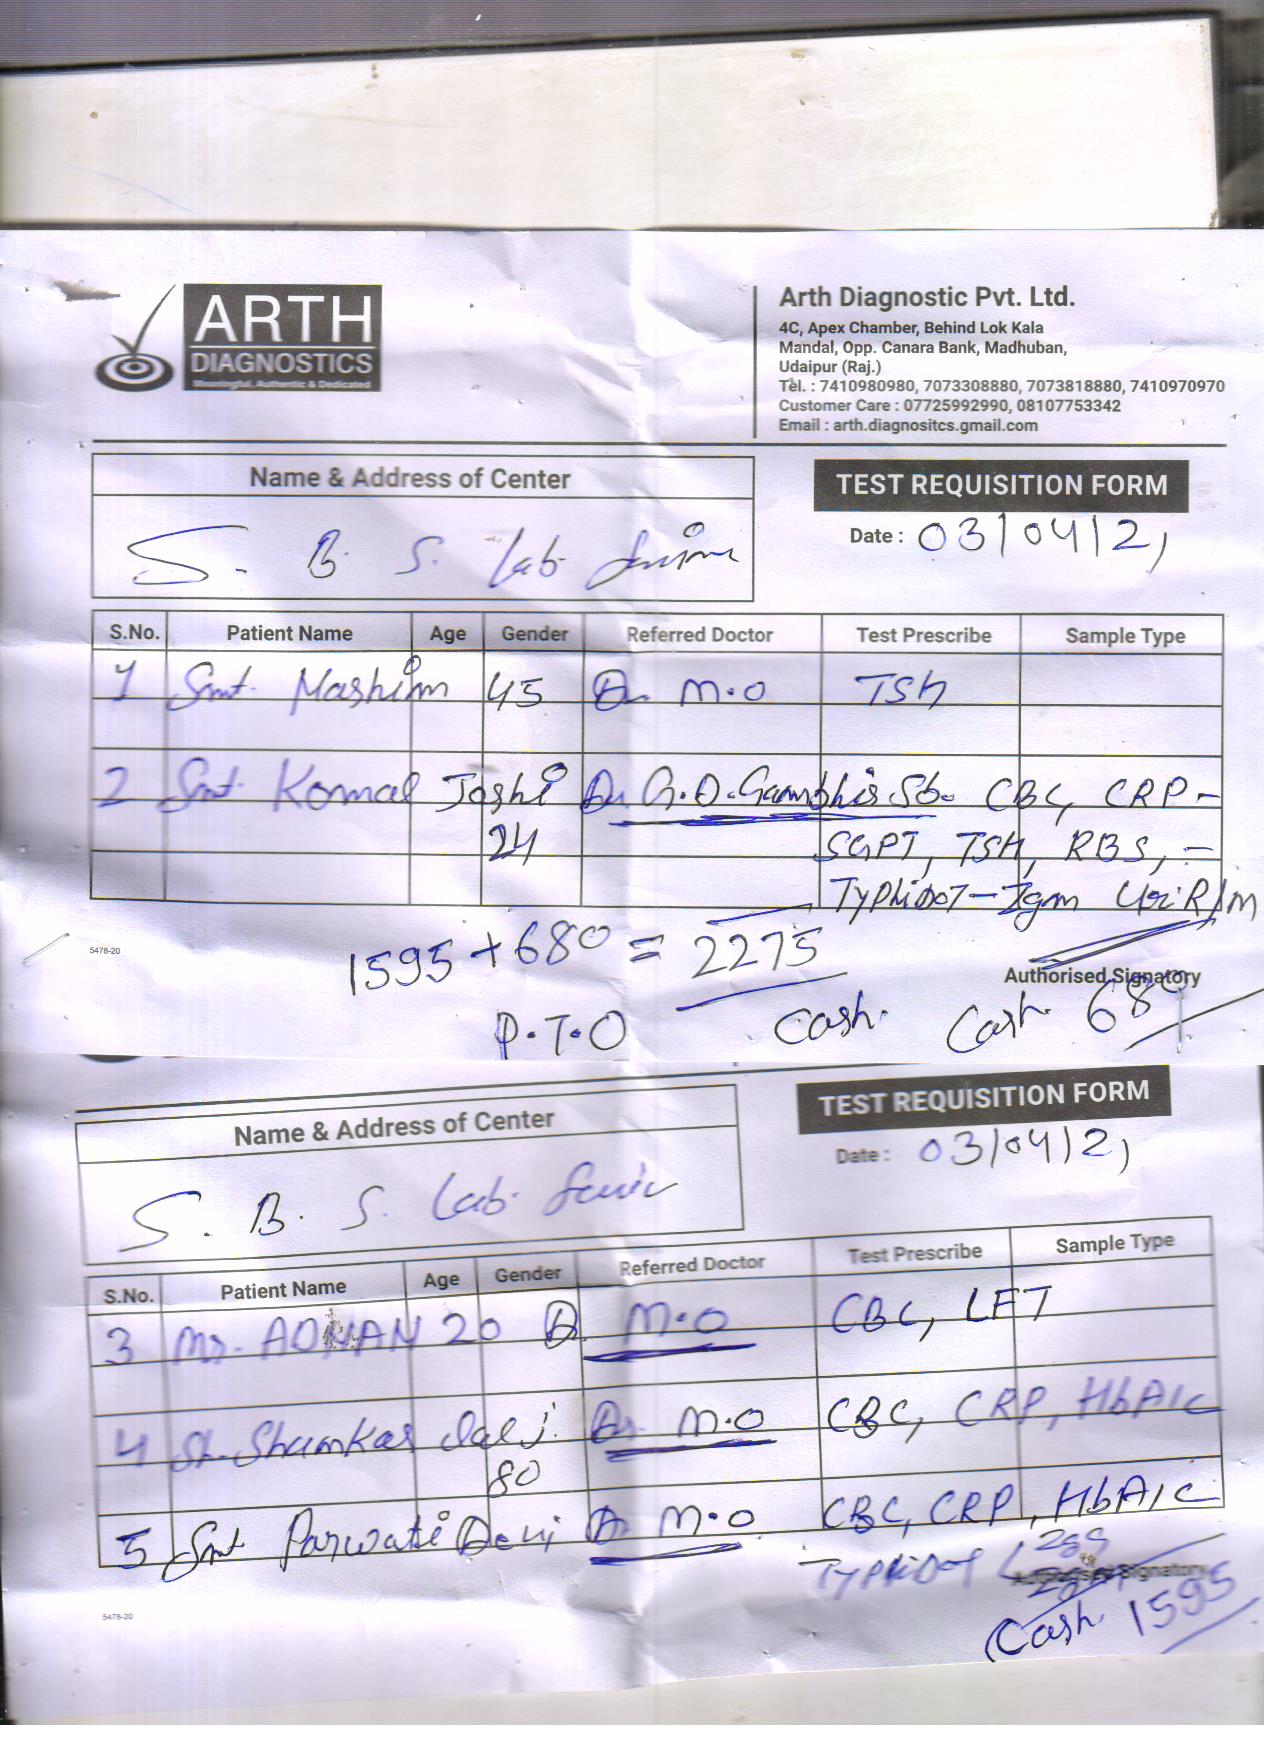 ARTH
DIAGNOSTICS
Meaningful, Authentic & Dedicated
Arth Diagnostic Pvt. Ltd.
4C, Apex Chamber, Behind Lok Kala
Mandal, Opp. Canara Bank, Madhuban,
Udaipur (Raj.)
Tel. : 7410980980, 7073308880, 7073818880, 7410970970
Customer Care : 07725992990, 08107753342
Email : arth.diagnositcs.gmail.com
Name & Address of Center
TEST REQUISITION FORM
Date : 03/04/21
S. B. S. Lab
S.No. Patient Name Age Gender Referred Doctor Test Prescribe Sample Type
1 Smt. Mashim 45 Dr. M.O TSH
2 Smt. Komal Joshi Dr. G.D. CBC, CRP-
24 SGPT, TSH, RBS, -
Typhidot-Igm Uri R/M
1595 + 680 = 2275
5478-20
Authorised Signatory
P.T.O Cash. Cash 680
Name & Address of Center
TEST REQUISITION FORM
Date : 03/04/21
S. B. S. Lab
S.No. Patient Name Age Gender Referred Doctor Test Prescribe Sample Type
3 Mr. ADNAN 20 Dr. M.O CBC, LFT
4 Sh. Shankar Lal ji Dr. M.O CBC, CRP, HbA1c
80
5 Smt Parwati Devi Dr M.O CBC, CRP, HbA1c
Typhidot
Authorised Signatory
5478-20
Cash 1595